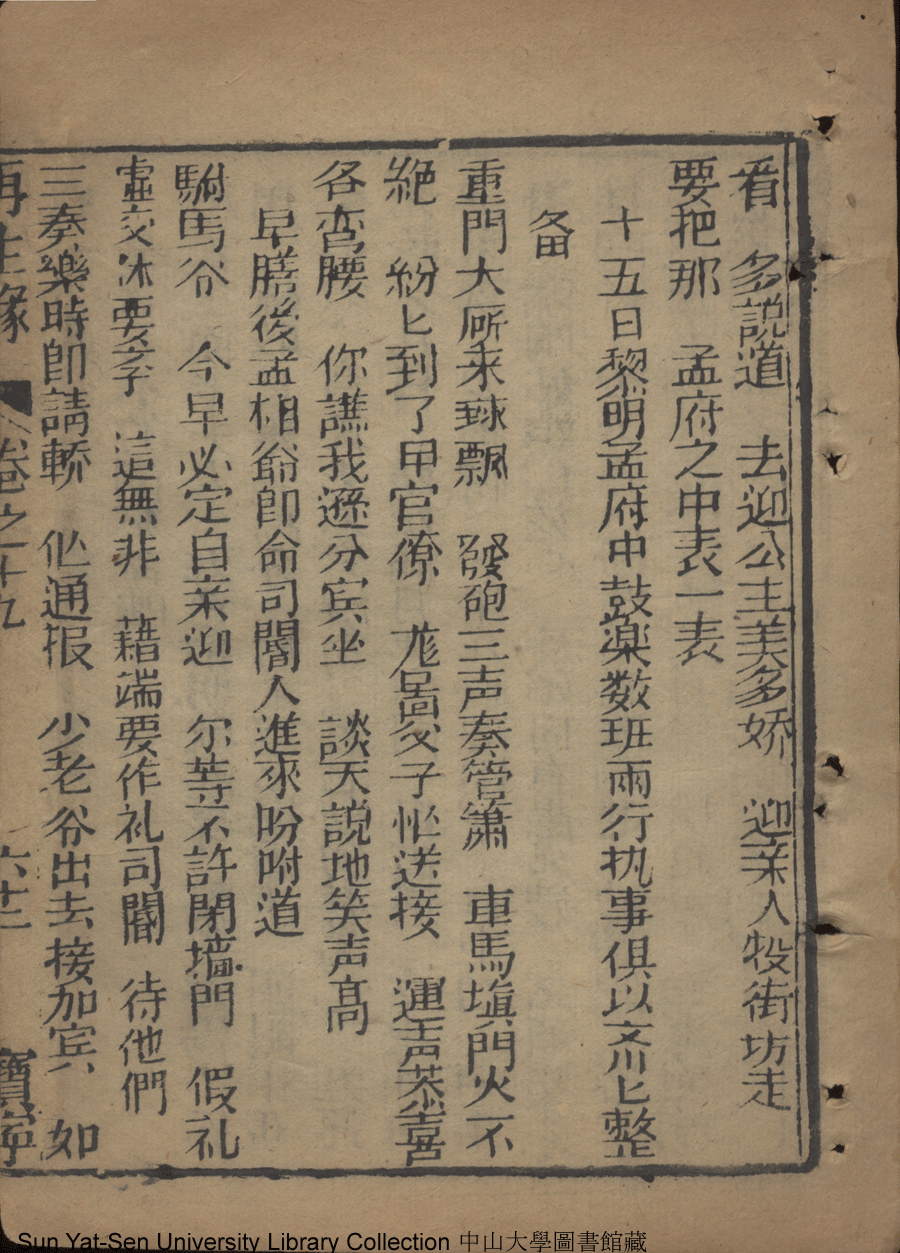 看　多説道　去迎公主美多娇　迎亲人役街坊走
要把那　孟府之中表一表
十五日黎明孟府中鼓楽数班兩行执事俱以齐匕整
备
重門大厛来球飘　發砲三声奏管簫　車馬塡門火不
絶　紛匕到了甲官僚　龙啚父子忙送接　連声恭喜
各弯腰　你讓我遜分宾坐　談天説地笑声高
早膳後孟相爺即命司閽人進來吩咐道
駙馬爷　今早必定自亲迎　尔等不許閉墻門　假礼
虚文休要亨　這無非　藉端要作礼司閽　待他們
三奏樂時即請轎　他通报　少老爷出去接加宾　如
再生緣　卷之十九　六十二　寶寧
Sun Yat-Sen University Library Collection 中山大學圖書館藏